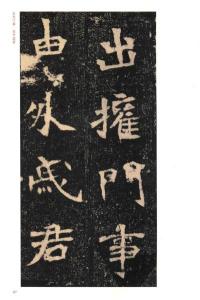 出擁門事
由外戚君